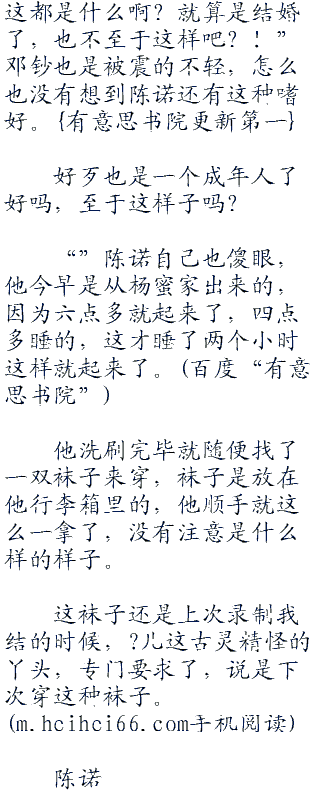 这都是什么啊？就算是结婚
了，也不至于这样吧？！”
邓钞也是被震的不轻，怎么
也没有想到陈诺还有这种嗜
好。{有意思书院更新第一}
好歹也是一个成年人了
好吗，至于这样子吗？
“”陈诺自己也傻眼，
他今早是从杨蜜家出来的，
因为六点多就起来了，四点
多睡的，这才睡了两个小时
这样就起来了。(百度“有意
思书院”)
他洗刷完毕就随便找了
一双袜子来穿，袜子是放在
他行李箱里的，他顺手就这
么一拿了，没有注意是什么
样的样子。
这袜子还是上次录制我
结的时候，?儿这古灵精怪的
丫头，专门要求了，说是下
次穿这种袜子。
(m.hcihci66.com手机阅读)
陈诺